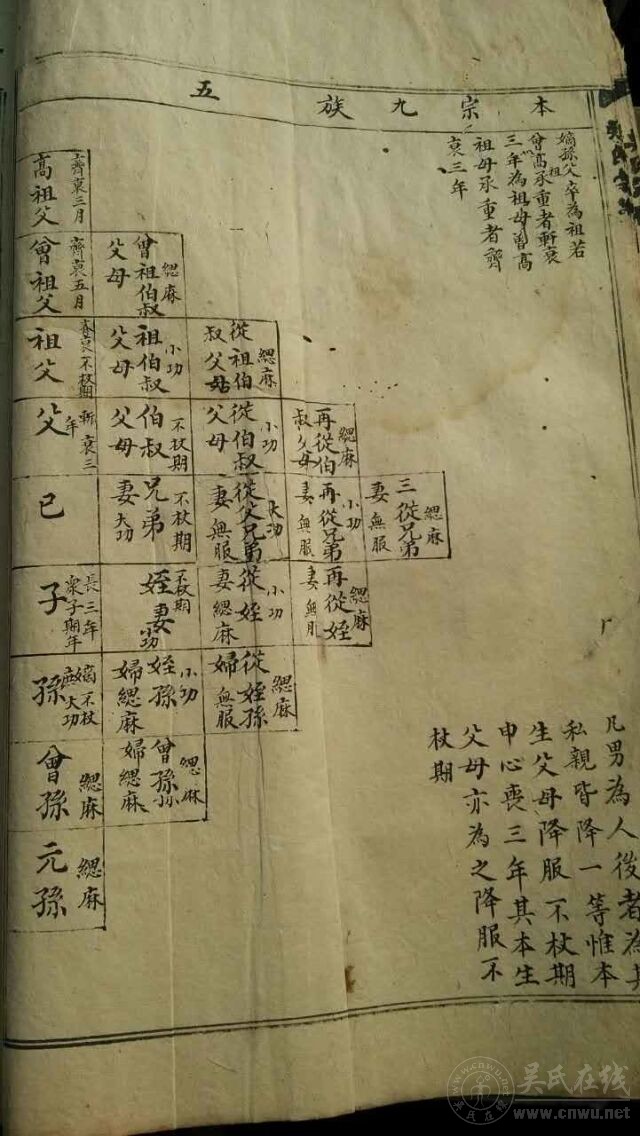 本宗九族五
嫡孫父卒為祖若
曾高祖承重者斬衰
三年為祖母曾高
祖母承重者齊
衰三年
高祖父 齊衰三月
曾祖父 齊衰五月
曾祖伯叔父母 緦麻
祖父 齊衰不杖期
祖伯叔父母 小功
從祖伯叔父姑 緦麻
父 斬衰三年
伯叔父母 不杖期
從伯叔父母 小功
再從伯叔父母 緦麻
已
兄弟 不杖期 妻大功
從父兄弟 大功 妻無服
再從兄弟 小功 妻無服
三從兄弟 緦麻 妻無服
子 長三年 眾子期年
姪 不杖期 妻 小功
從姪 小功 妻緦麻
再從姪 緦麻 妻無月
孫 嫡不杖 庶大功
姪孫 小功 婦緦麻
從姪孫 緦麻 婦無服
曾孫 緦麻
曾孫 緦麻 婦緦麻
元孫 緦麻
凡男為人後者為其
私親皆降一等惟本
生父母降服不杖期
申心喪三年其本生
父母亦為之降服不
杖期
吴氏在线
www.cnwu.net